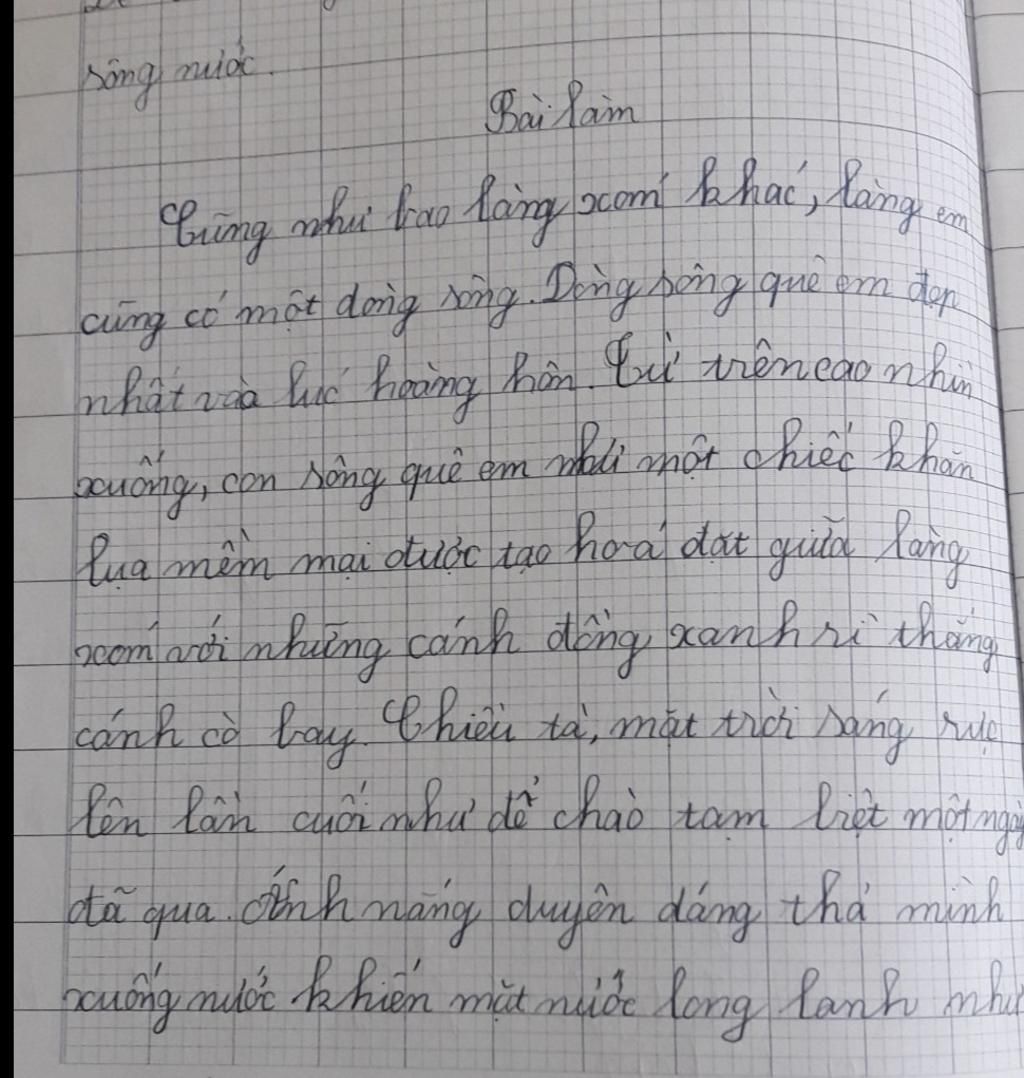 sông nước.
Bài làm
Cũng như bao làng xóm khác, làng em
cũng có một dòng sông. Dòng sông quê em đẹp
nhất vào lúc hoàng hôn. Từ trên cao nhìn
xuống, con sông quê em như một chiếc khăn
lụa mềm mại được tạo hoá đặt giữa làng
xóm với những cánh đồng xanh rì thẳng
cánh cò bay. Chiều tà, mặt trời sáng rực
lên lần cuối như để chào tạm biệt một ngày
đã qua. Ánh nắng duyên dáng thả mình
xuống nước khiến mặt nước long lanh như